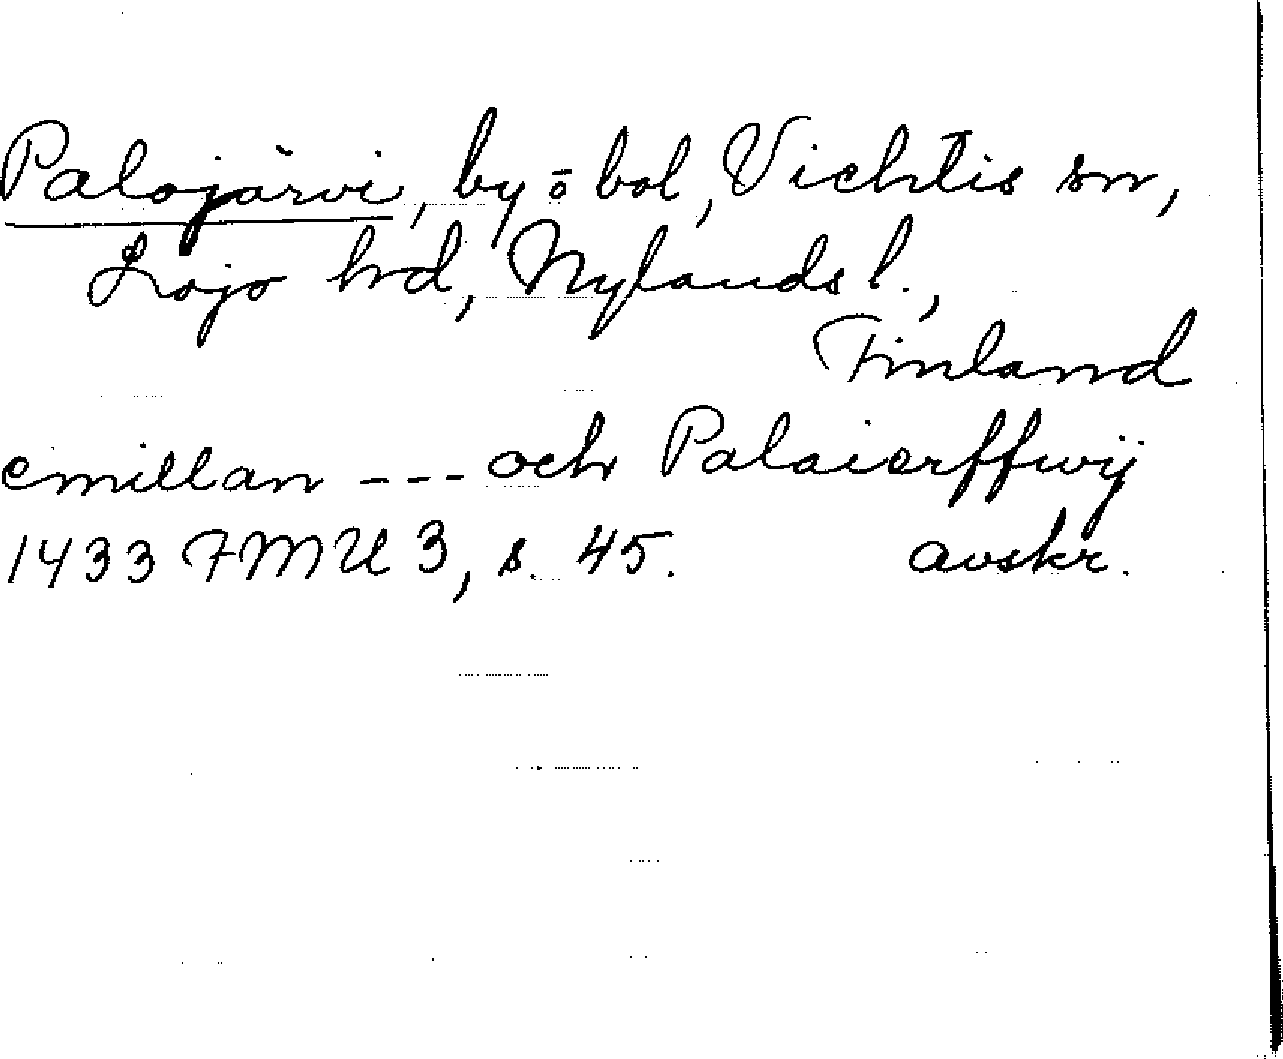 Palojärvi, by o bol, Vichtis sn,
Lojo hd, Nylands l.,
Finland
emillan --- och Palaierffwij
1433 FMU 3, s. 45. avskr.